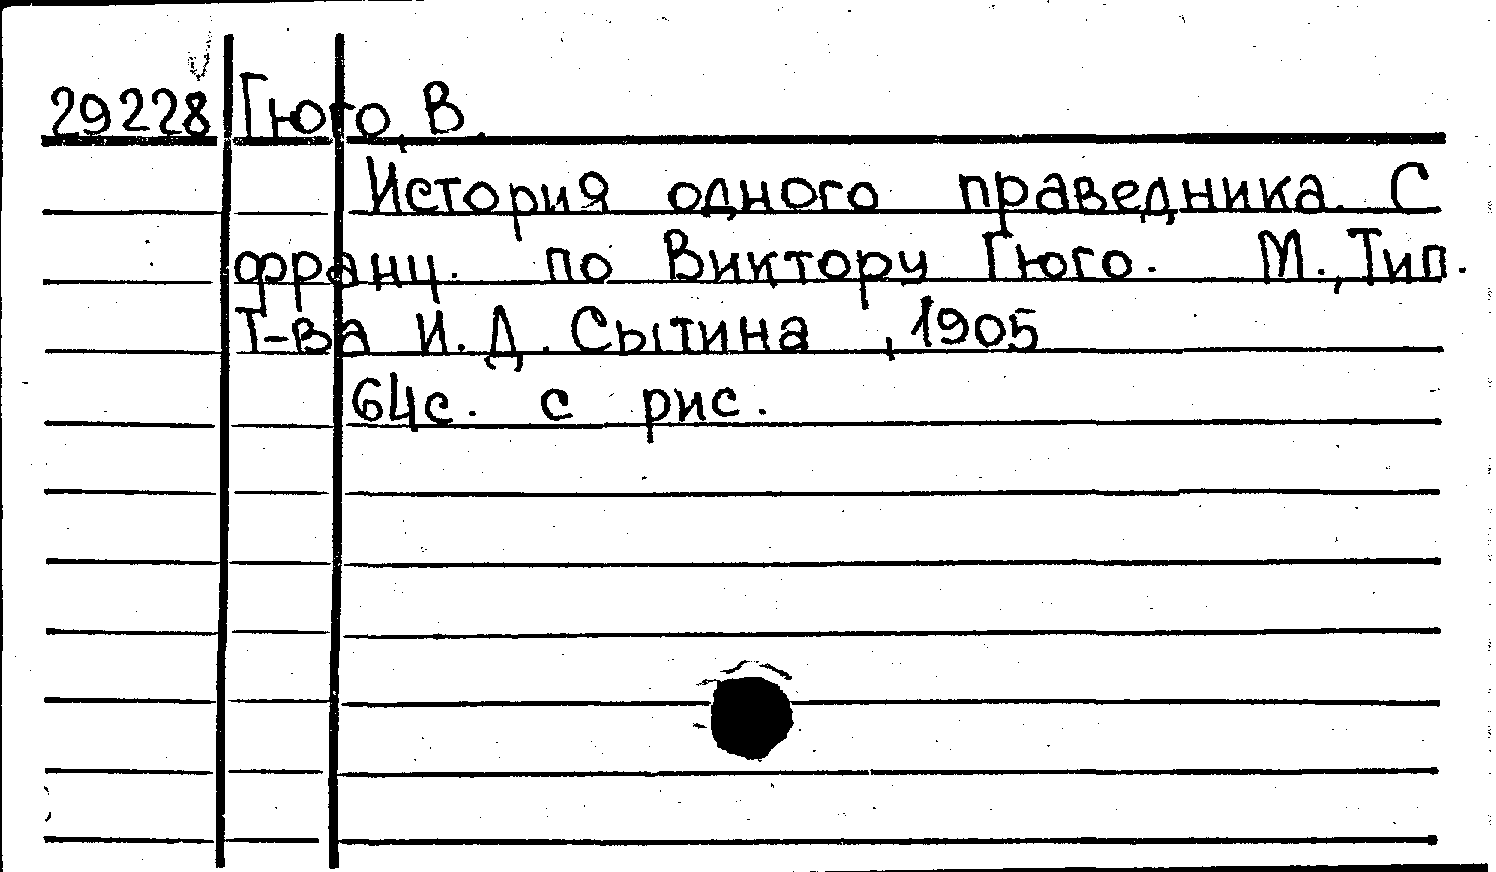 29228 Гюго, В.
История одного праведника. С
франц. по Виктору Гюго. М., Тип.
Т-ва И. Д. Сытина, 1905
64с. с рис.